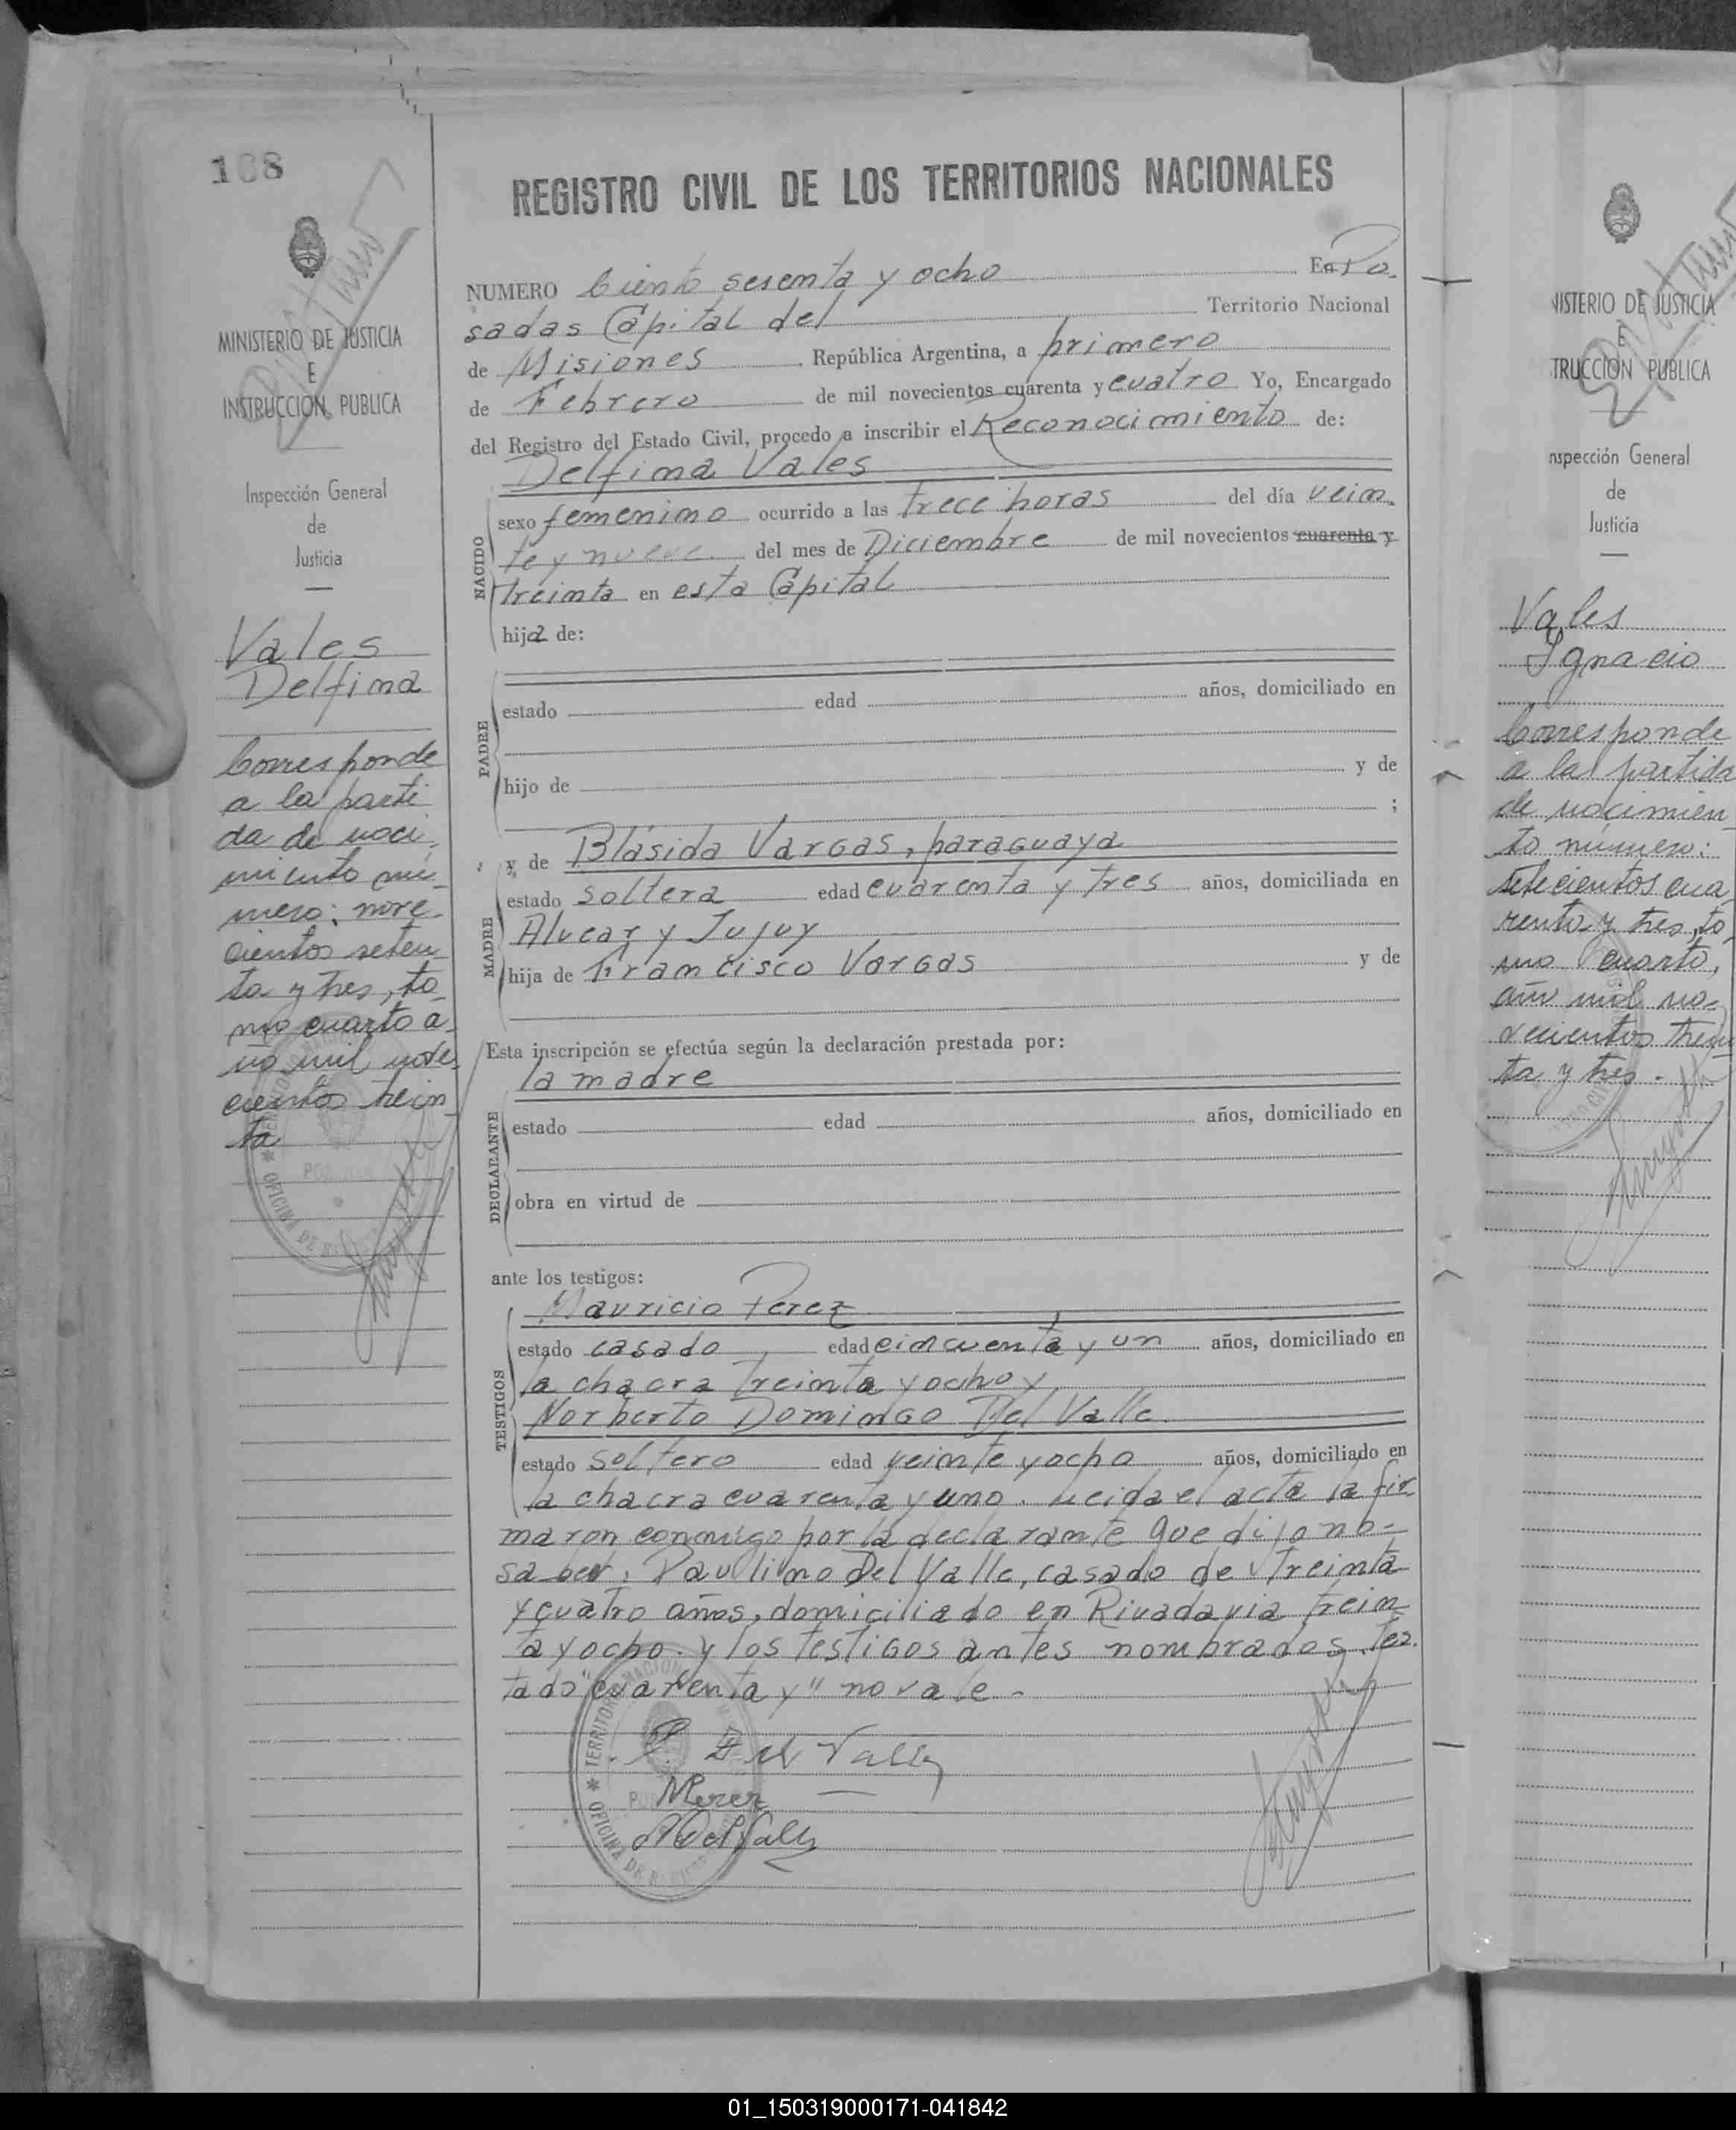 168
MINISTERIO DE JUSTICIA
E
INSTRUCCION PUBLICA
Inspección General
de
Justicia
Vales
Delfina
Corresponde
a la parti
da de naci-
miento nú-
mero: nove
cientos seten-
ta y tres, to-
mo cuarto a-
ño mil nove
cientos trein-
ta
REGISTRO CIVIL DE LOS TERRITORIOS NACIONALES
NUMERO Ciento sesenta y ocho En Po-
sadas Capital del Territorio Nacional
de Misiones, República Argentina, a primero
de Febrero de mil novecientos cuarenta y cuatro Yo, Encargado
del Registro del Estado Civil, procedo a inscribir el Reconocimiento de:
Delfina Vales
NACIDO
sexo femenino ocurrido a las trece horas del día vein-
te y nueve del mes de Diciembre de mil novecientos cuarenta y
treinta en esta Capital
hija de:
PADRE
estado edad años, domiciliado en
hijo de y de
;
MADRE
y de Blásida Vargas, paraguaya
estado soltera edad cuarenta y tres años, domiciliada en
Alvear y Jujuy
hija de Francisco Vargas y de
Esta inscripción se efectúa según la declaración prestada por:
la madre
DECLARANTE
estado edad años, domiciliado en
obra en virtud de
ante los testigos:
TESTIGOS
Mauricio Perez
estado casado edad cincuenta y un años, domiciliado en
la chacra treinta y ocho y
Norberto Domingo Del Valle
estado soltero edad veinte y ocho años, domiciliado en
la chacra cuarenta y uno. Leida el acta la fir-
maron conmigo por la declarante que dijo no-
saber. Paulino Del Valle, casado de treinta
y cuatro años, domiciliado en Rivadavia trein
ta y ocho. y los testigos antes nombrados. tes-
tado "cuarenta y" no vale-
P. Del Valle
MPerez
NDelValle
TERRITORIO NACIONAL
OFICINA DE
NISTERIO DE JUSTICIA
E
TRUCCION PUBLICA
nspección General
de
Justicia
Vales
Ignacio
Corresponde
a la partida
de nacimien-
to número:
setecientos cua
renta y tres, to-
mo cuarto,
año mil no-
vecientos trein
ta y tres.
01_150319000171-041842